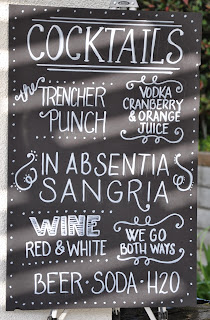 COCKTAILS
the TRENCHER
PUNCH
VODKA
CRANBERRY
& ORANGE
JUICE
IN ABSENTIA
SANGRIA
WINE
RED & WHITE
WE GO
BOTH WAYS
BEER · SODA · H20